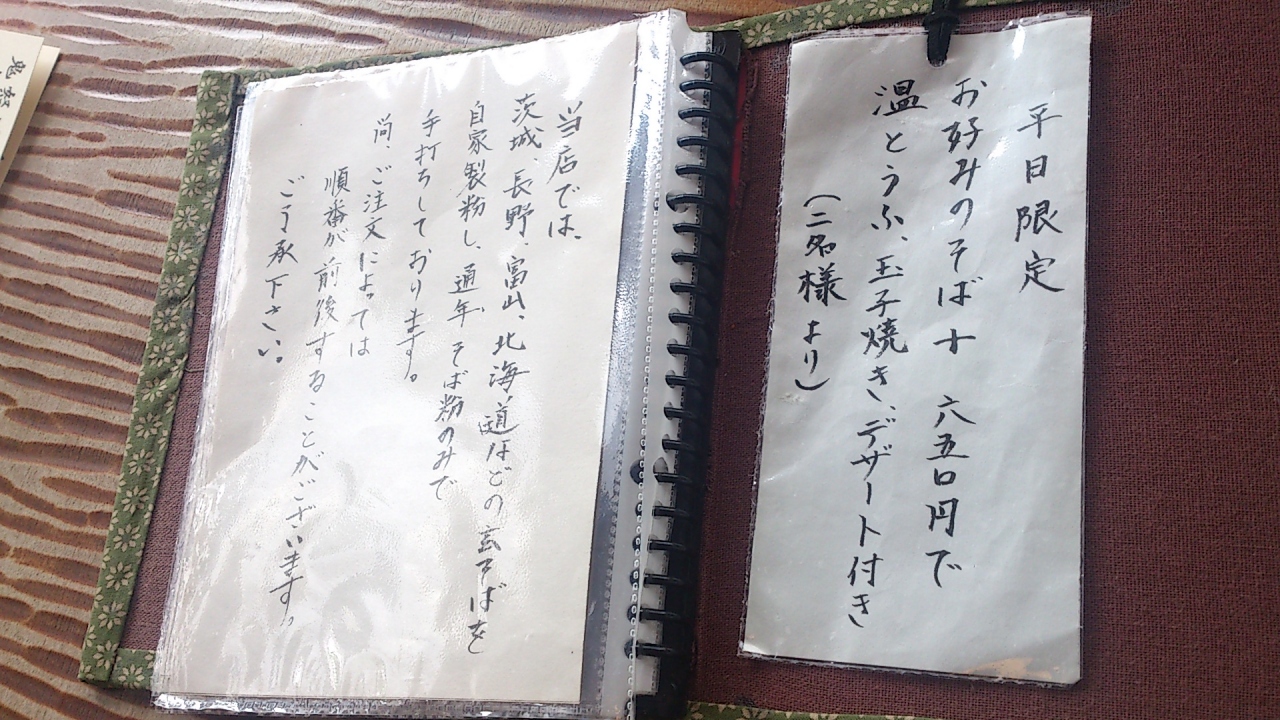 平日限定
お好みのそば＋六五〇円で
温とうふ、玉子焼き、デザート付き
（二名様より）
当店では、
茨城、長野、富山、北海道などの玄そばを
自家製粉し、通年そば粉のみで
手打ちしております。
尚、ご注文によっては
順番が前後することがございます。
ご了承下さい。